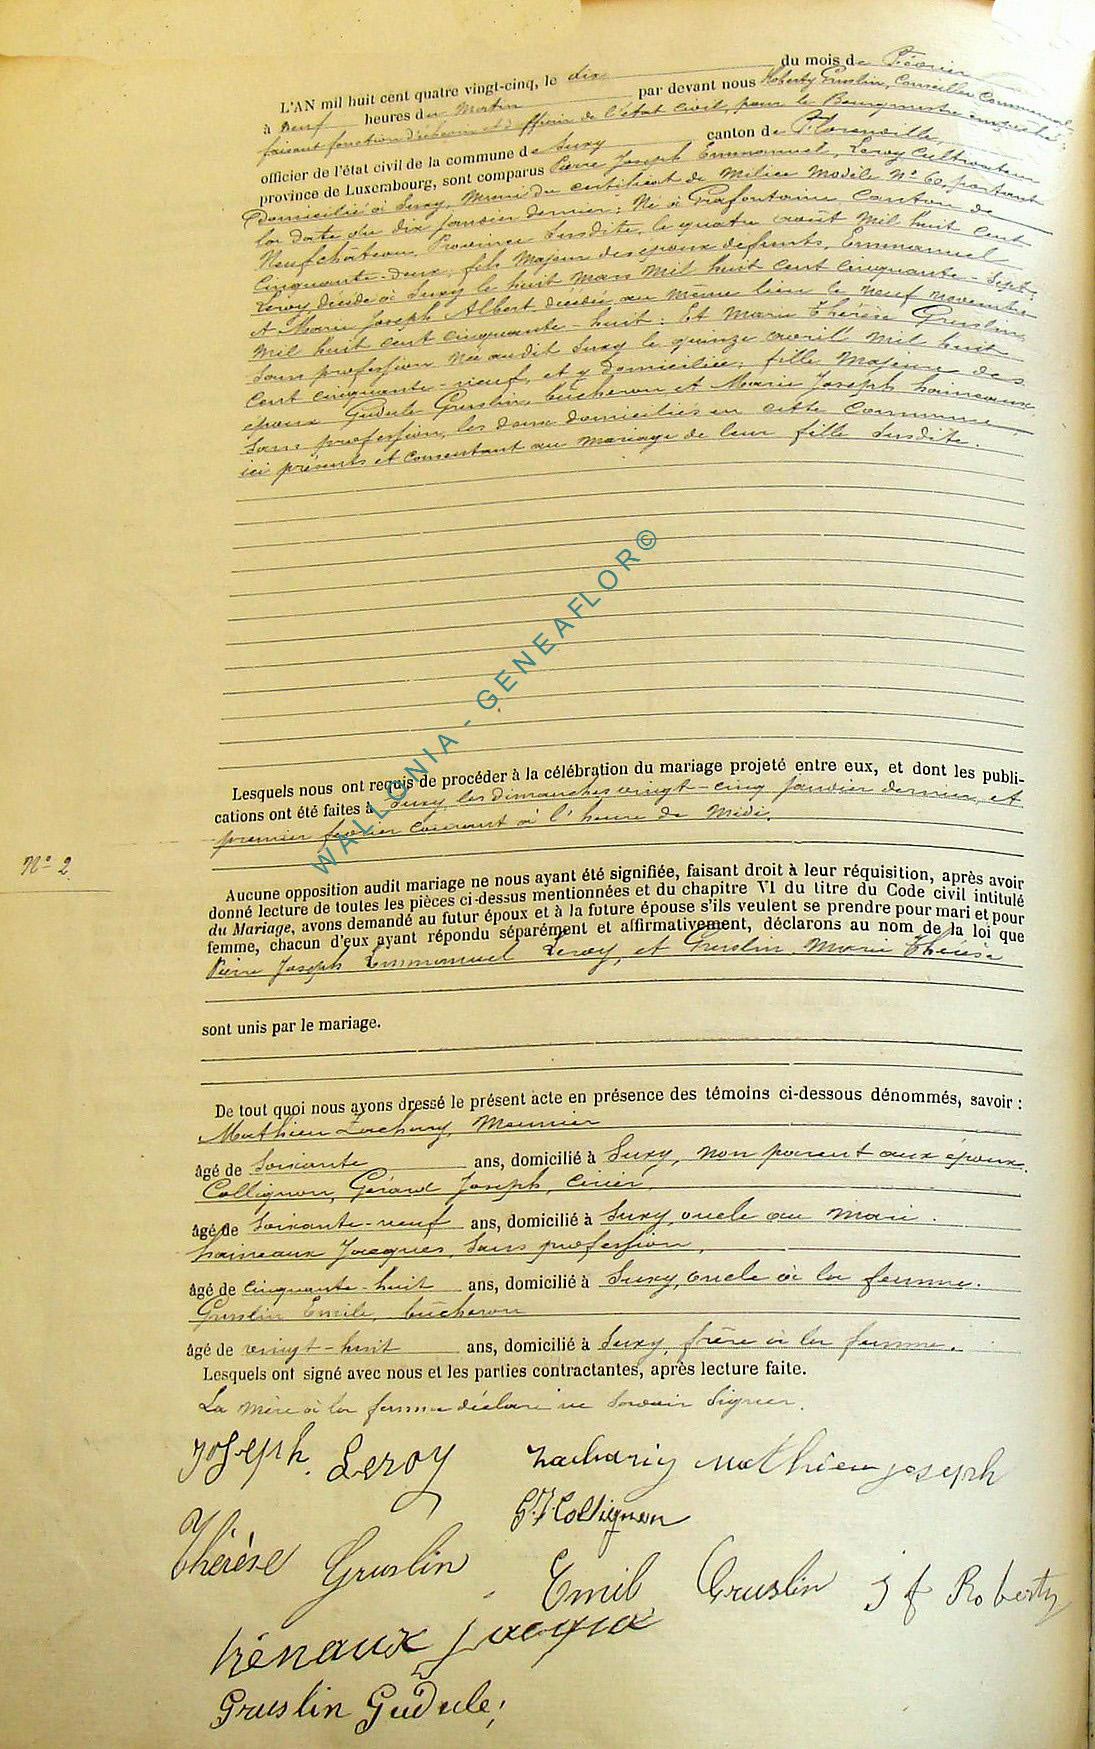 L'AN mil huit cent quatre vingt-cinq, le dix du mois de Février
à neuf heures du Matin par devant nous Roberty Gruslin, Conseiller Communal
faisant fonction d'échevin et d'officier de l'état civil, pour le Bourgmestre empêché
officier de l'état civil de la commune de Suxy canton de Florenville
province de Luxembourg, sont comparus Pierre Joseph Emmanuel, Leroy Cultivateur
Domicilié à Suxy, Muni du certificat de Milice Modèle N° 60, portant
la date du dix janvier dernier; Né à Grafontaine Canton de
Neufchâteau, Province Susdite, le quatre août Mil huit cent
Cinquante-deux, fils Majeur des époux défunts, Emmanuel
Leroy décédé à Suxy le huit Mars Mil huit cent cinquante-sept
et Marie Joseph Albert, décédée au même lieu le neuf novembre
Mil huit cent cinquante-huit: Et Marie Thérèse Gruslin
sans profession Née audit Suxy le quinze avril Mil huit
cent cinquante-neuf, et y domiciliée, fille Majeure des
époux Gudule Gruslin, bûcheron et Marie Joseph haineaux
sans profession, les deux domiciliés en cette Commune
ici présents et consentant au mariage de leur fille Susdite.
Lesquels nous ont requis de procéder à la célébration du mariage projeté entre eux, et dont les publi-
cations ont été faites à Suxy, les dimanches vingt-cinq Janvier dernier, et
premier février courant à l'heure de Midi.
N° 2
Aucune opposition audit mariage ne nous ayant été signifiée, faisant droit à leur réquisition, après avoir
donné lecture de toutes les pièces ci-dessus mentionnées et du chapitre VI du titre du Code civil intitulé
du Mariage, avons demandé au futur époux et à la future épouse s'ils veulent se prendre pour mari et pour
femme, chacun d'eux ayant répondu séparément et affirmativement, déclarons au nom de la loi que
Pierre Joseph Emmanuel Leroy, et Gruslin Marie Thérèse
sont unis par le mariage.
De tout quoi nous avons dressé le présent acte en présence des témoins ci-dessous dénommés, savoir :
Mathieu Zachary, Meunier
âgé de Soixante ans, domicilié à Suxy, non parent aux époux.
Collignon, Gérard Joseph, Cirier
âgé de Soixante-neuf ans, domicilié à Suxy, oncle au Mari.
haineaux Jacques, Sans profession,
âgé de cinquante-huit ans, domicilié à Suxy, oncle à la femme.
Gruslin Emile, bûcheron
âgé de vingt-huit ans, domicilié à Suxy, frère à la femme.
Lesquels ont signé avec nous et les parties contractantes, après lecture faite.
La mère à la femme déclare ne Savoir Signer.
Joseph Leroy Zachariy Mathieu joseph
G.J. Collignon
Thérèse Gruslin Emil Gruslin J f Roberty
hénaux
Gruslin Gudule;
WALLONIA - GENEAFLOR©